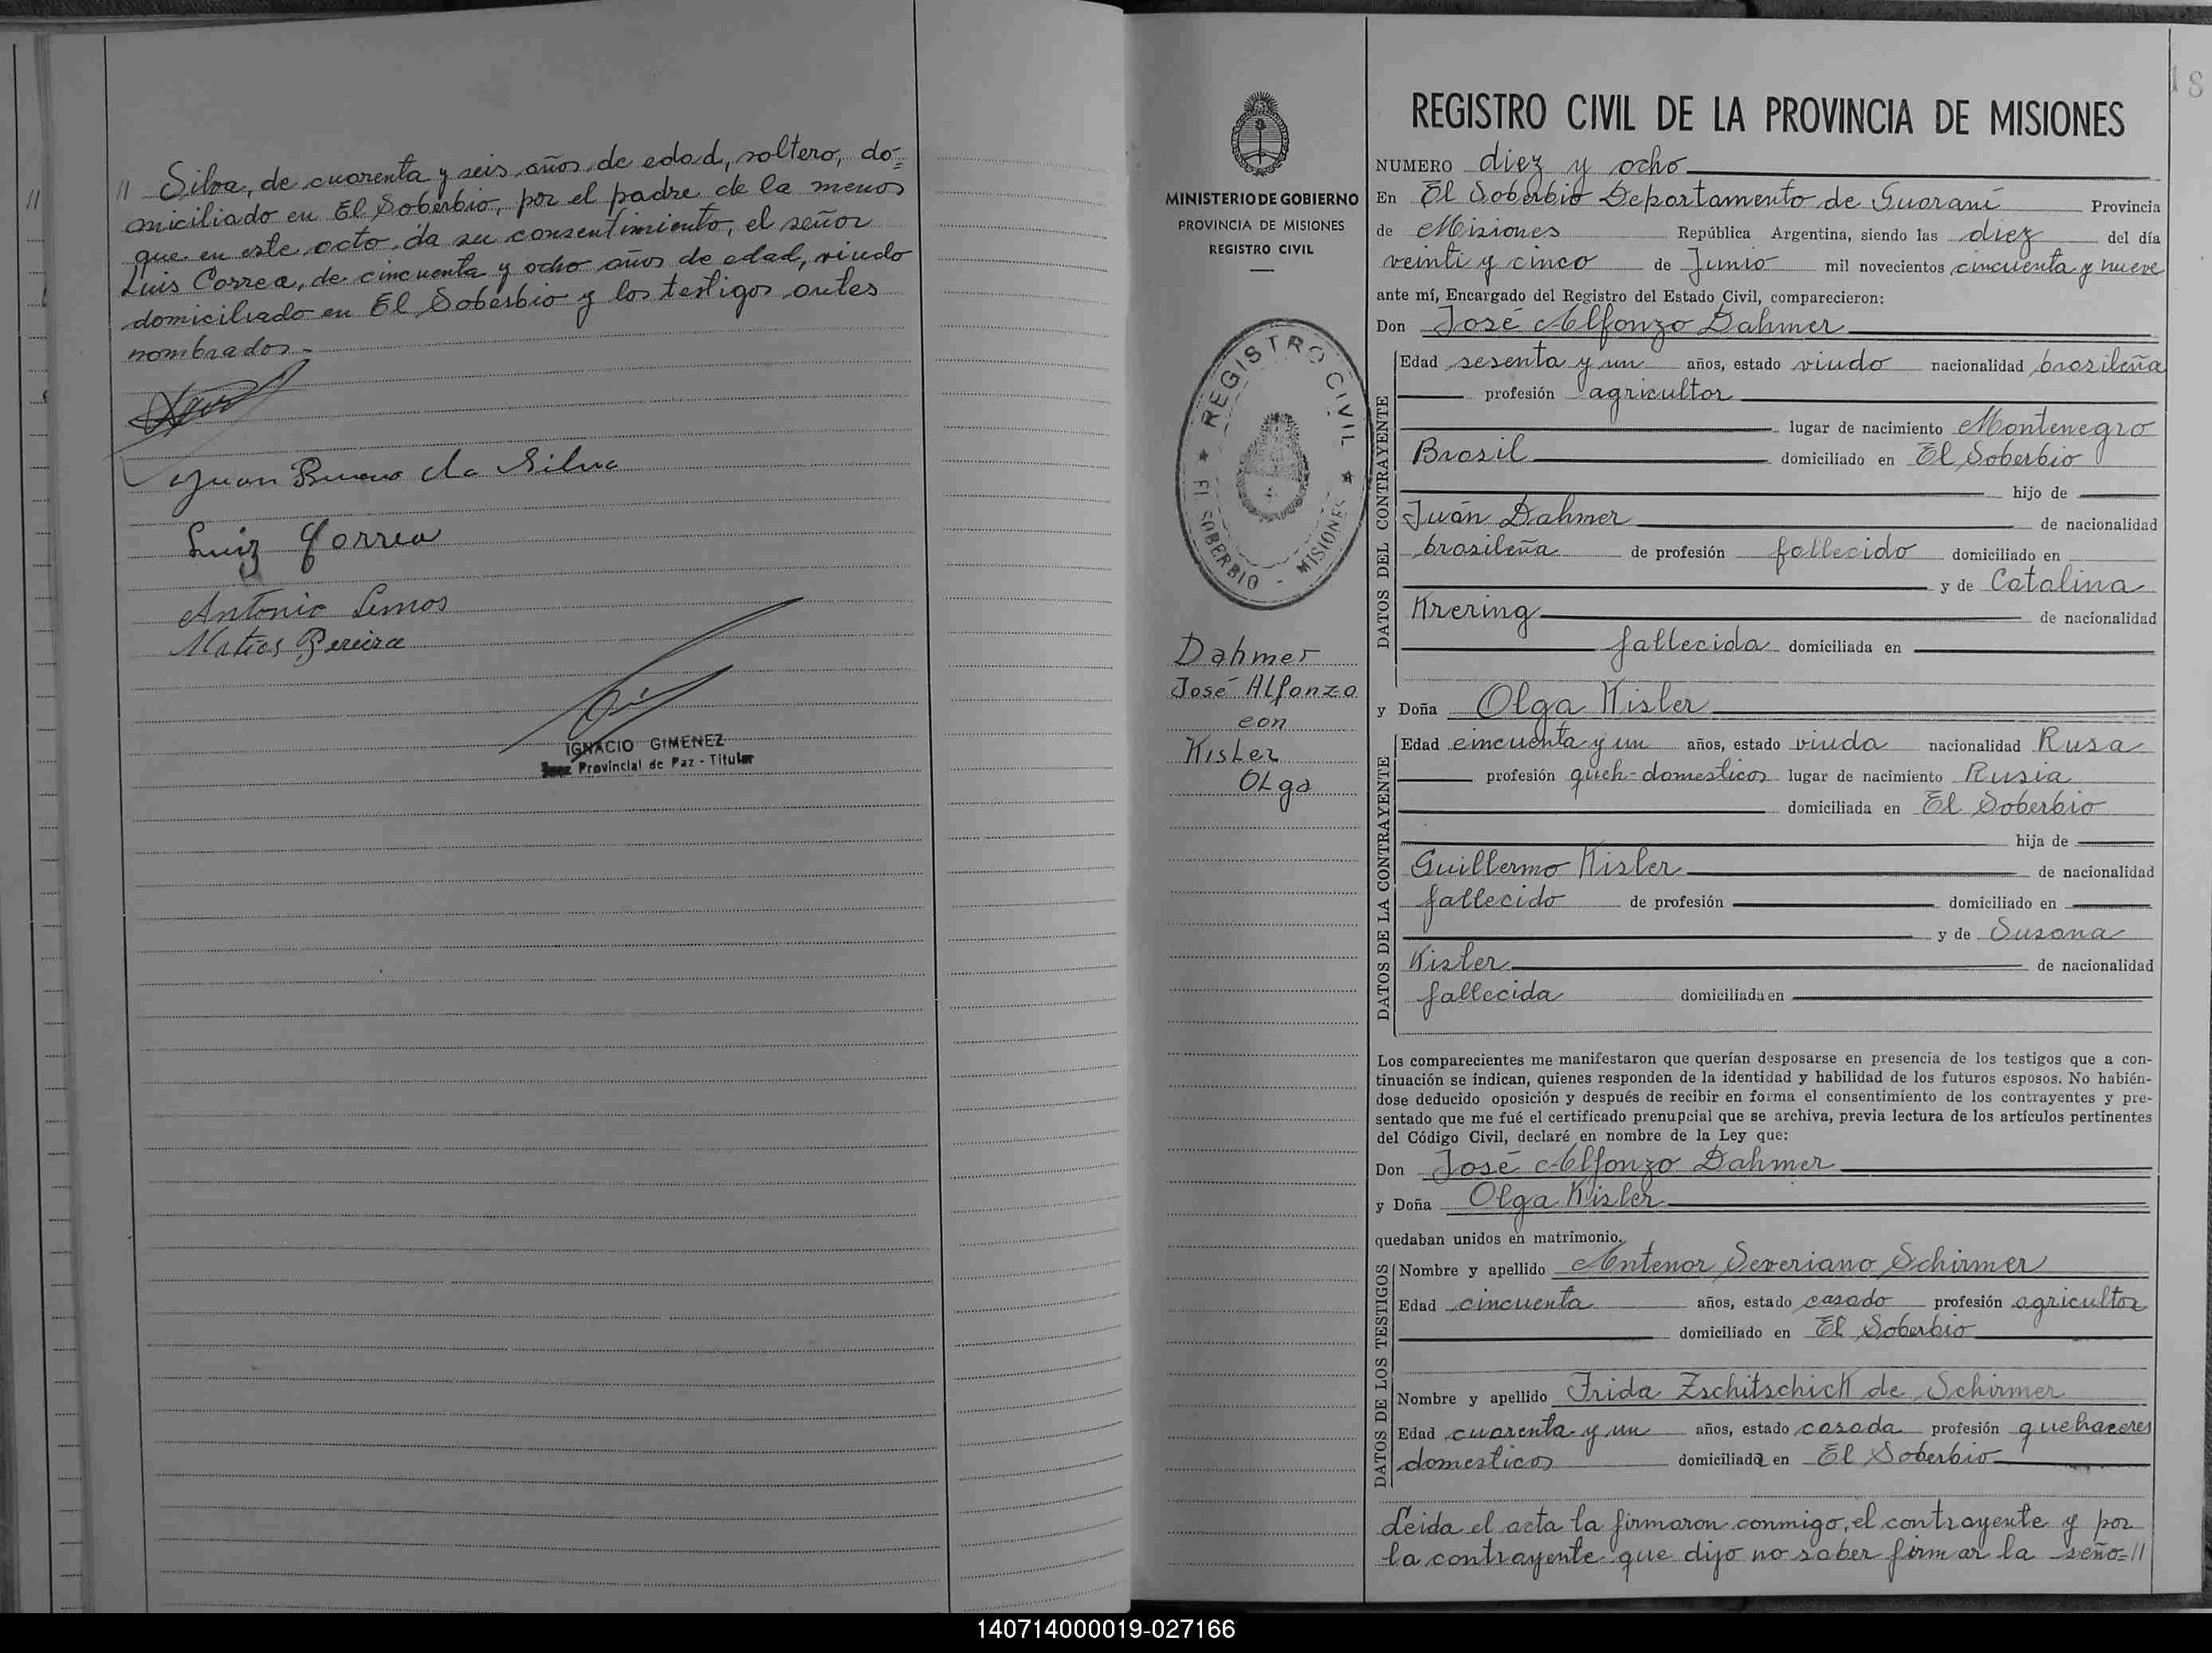 // Silva, de cuarenta y seis años de edad, soltero, do=
miciliado en El Soberbio, por el padre de la menor
que en este acto da su consentimiento, el señor
Luis Correa, de cincuenta y ocho años de edad, viudo
domiciliado en El Soberbio y los testigos antes
nombrados.-
Juan Bueno da Silva
Luiz Correa
Antonio Lemos
Matias Pereira
IGNACIO GIMENEZ
Juez Provincial de Paz - Titular
18
MINISTERIO DE GOBIERNO
PROVINCIA DE MISIONES
REGISTRO CIVIL
REGISTRO CIVIL
EL SOBERBIO - MISIONES
Dahmer
José Alfonzo
con
Kisler
Olga
REGISTRO CIVIL DE LA PROVINCIA DE MISIONES
NUMERO diez y ocho
En El Soberbio Departamento de Guaraní Provincia
de Misiones República Argentina, siendo las diez del día
veinti y cinco de Junio mil novecientos cincuenta y nueve
ante mí, Encargado del Registro del Estado Civil, comparecieron:
Don José Alfonzo Dahmer
DATOS DEL CONTRAYENTE
Edad sesenta y un años, estado viudo nacionalidad brasileña
profesión agricultor
lugar de nacimiento Montenegro
Brasil domiciliado en El Soberbio
hijo de
Juán Dahmer de nacionalidad
brasileña de profesión fallecido domiciliado en
y de Catalina
Krering de nacionalidad
fallecida domiciliada en
y Doña Olga Kisler
DATOS DE LA CONTRAYENTE
Edad cincuenta y un años, estado viuda nacionalidad Rusa
profesión queh-domesticos lugar de nacimiento Rusia
domiciliada en El Soberbio
hija de
Guillermo Kisler de nacionalidad
fallecido de profesión domiciliado en
y de Susana
Kisler de nacionalidad
fallecida domiciliada en
Los comparecientes me manifestaron que querían desposarse en presencia de los testigos que a con-
tinuación se indican, quienes responden de la identidad y habilidad de los futuros esposos. No habién-
dose deducido oposición y después de recibir en forma el consentimiento de los contrayentes y pre-
sentado que me fué el certificado prenupcial que se archiva, previa lectura de los artículos pertinentes
del Código Civil, declaré en nombre de la Ley que:
Don José Alfonzo Dahmer
y Doña Olga Kisler
quedaban unidos en matrimonio.
DATOS DE LOS TESTIGOS
Nombre y apellido Antenor Severiano Schirmer
Edad cincuenta años, estado casado profesión agricultor
domiciliado en El Soberbio
Nombre y apellido Frida Zschitschick de Schirmer
Edad cuarenta y un años, estado casada profesión quehaceres
domesticos domiciliada en El Soberbio
Leida el acta la firmaron conmigo, el contrayente y por
la contrayente que dijo no saber firmar la seño=//
140714000019-027166